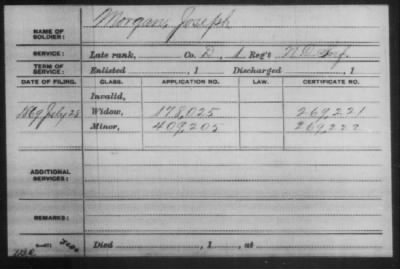 NAME OF SOLDIER: Morgan, Joseph
SERVICE: Late rank, Co. D, 1 Reg't Inf.
TERM OF SERVICE: Enlisted , 1 Discharged , 1
DATE OF FILING. CLASS. APPLICATION NO. LAW. CERTIFICATE NO.
Invalid,
1869 July 23 Widow, 178,025 269,221
Minor, 409,205 269,222
ADDITIONAL SERVICES:
REMARKS:
Died , 1 , at